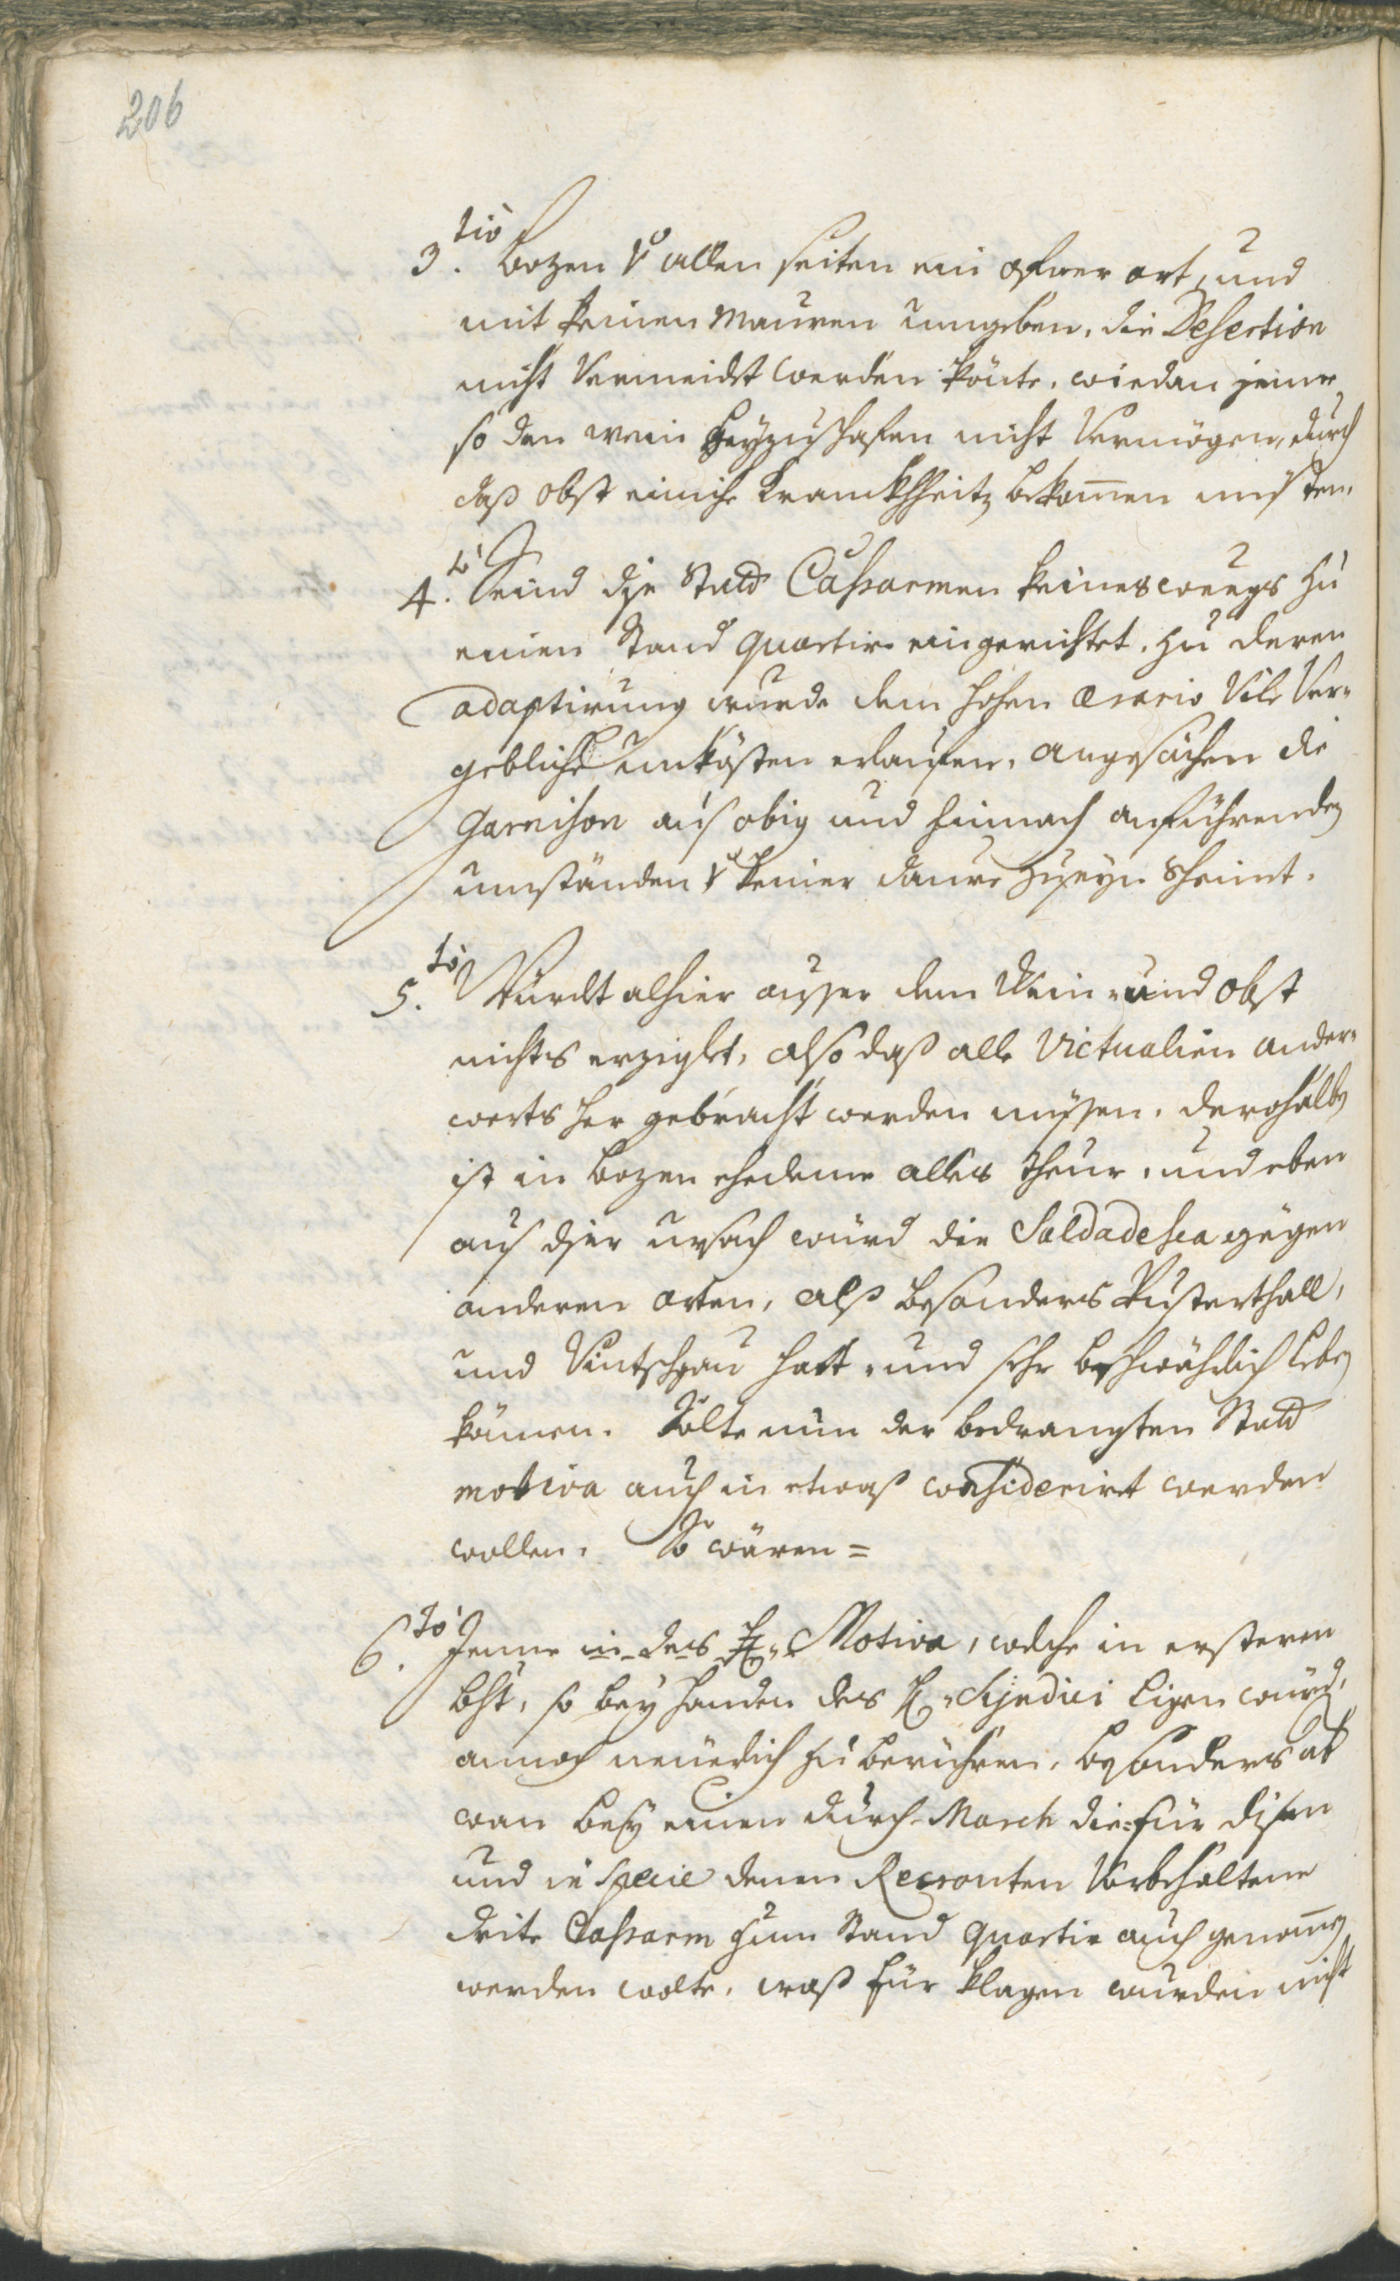 206
3.tio Bozen von allen seiten ein ofner ort, und
mit keinen Mauren umgeben, die Desertion
nicht Vermeidet werden könte, wie dan jene
so den wein beyzuschafen nicht Vermögen, durch
daß obst einiche Kranckhheitz bekommen müsten.
4.to Seind dise Statt Cassarmen keineswegs zu
einen Stand quartier eingerichtet, zu deren
adaptirung wurde dem hohen ærario Vile Ver-
gebliche unkosten erlaufen, angesächen die
Garnison aus obig und hinnach anführenden
umständen von keiner daure zu seyn scheint.
5.to Wurdt alhier ausser dem Wein- und obst
nichts erziglet, also daß alle Victualien ander-
werts her gebracht werden müssen, derohalben
ist in Bozen ehedeme alles theur, und eben
aus diser ursach wurd die Soldadesca gegen
anderen orten, alß besonders Pusterthall,
und Vintschgau hatt- und sehr beschwährlich leben
können. Solte nun der bedrangten Statt
motiva auch in etwaß considerirt werden
wollen. So wären =
6.to Jenne in des H. Motiva, welche in ersteren
bstt, so bey handen des H. Syndici ligen wurd,
annoch neuerlich zu berühren, besonders ab
wan bey einen durch-March die für disen
und in specie denen Recrouten Vorbehaltene
drite Cassarm zum Stand quartir auch genommen
werden wolte, waß für klagen wurden nicht